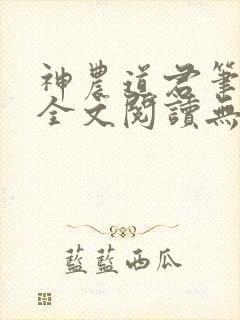 神農道君筆
全文閱讀無
藍藍西瓜